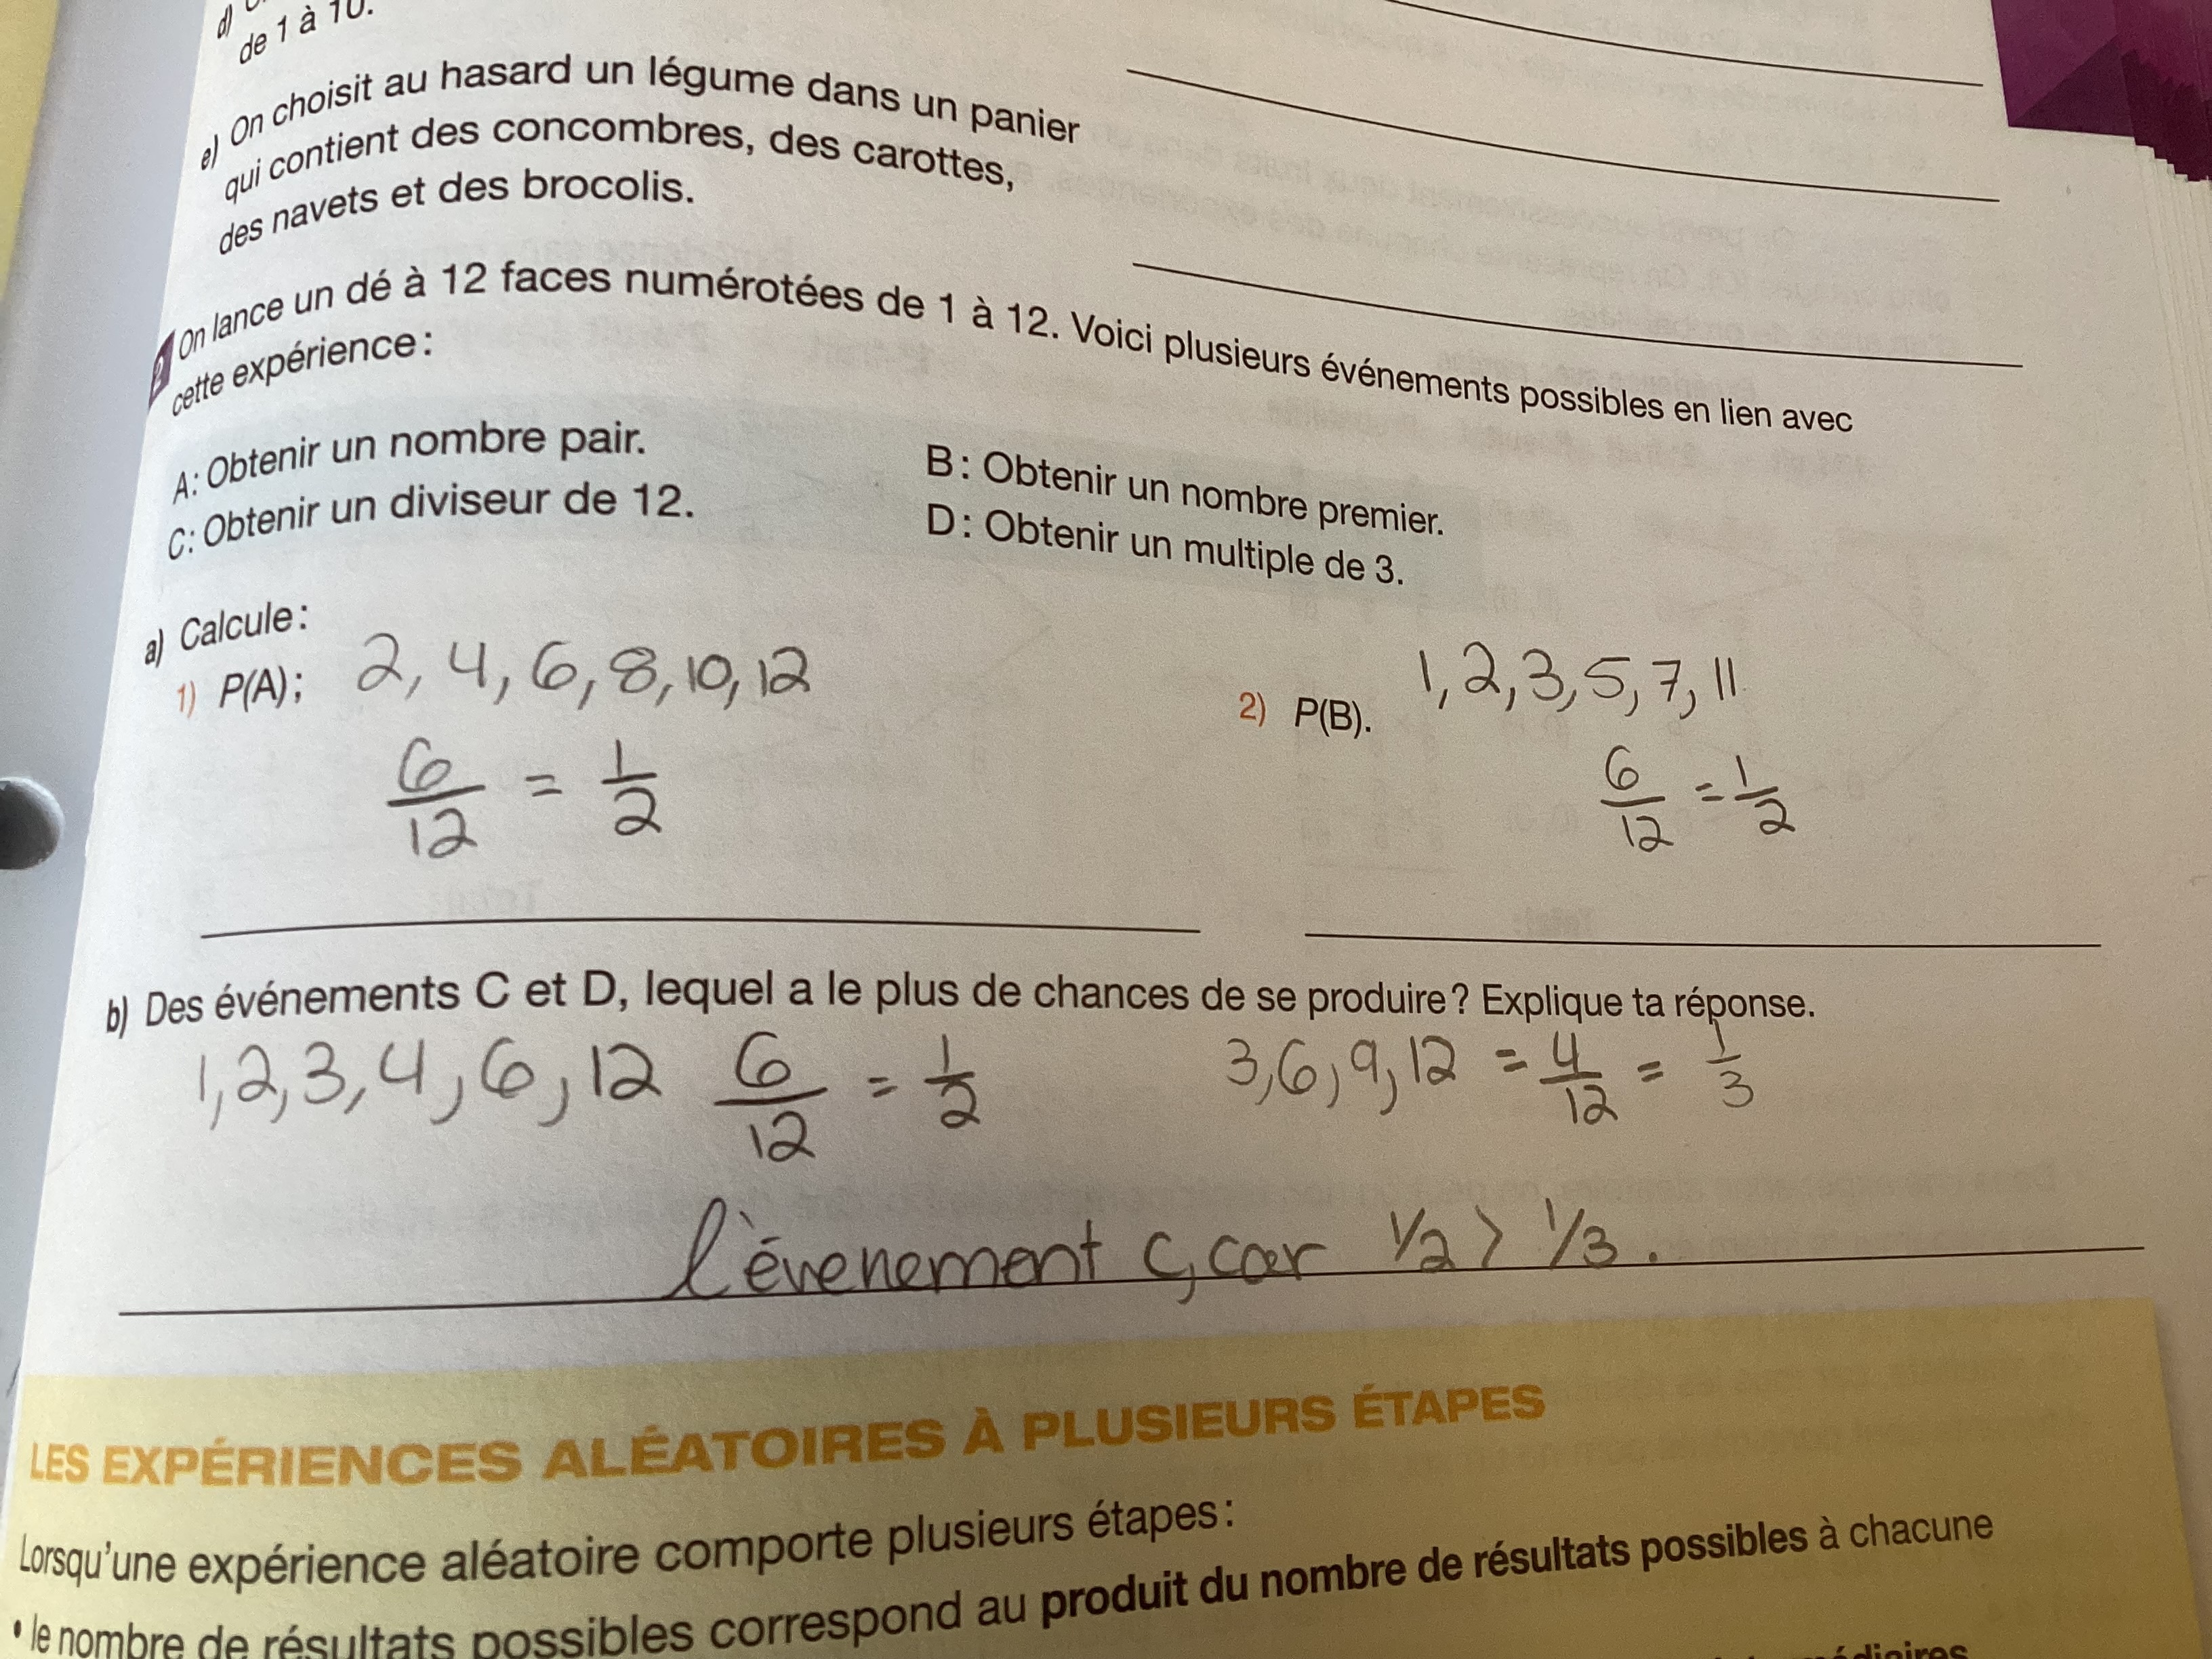 d)
de 1 à 10.
e) On choisit au hasard un légume dans un panier
qui contient des concombres, des carottes,
des navets et des brocolis.
2 On lance un dé à 12 faces numérotées de 1 à 12. Voici plusieurs événements possibles en lien avec
cette expérience :
A: Obtenir un nombre pair.
B: Obtenir un nombre premier.
C: Obtenir un diviseur de 12.
D: Obtenir un multiple de 3.
a) Calcule :
1) P(A); 2, 4, 6, 8, 10, 12
6/12 = 1/2
2) P(B). 1, 2, 3, 5, 7, 11
6/12 = 1/2
b) Des événements C et D, lequel a le plus de chances de se produire ? Explique ta réponse.
1, 2, 3, 4, 6, 12 6/12 = 1/2
3, 6, 9, 12 = 4/12 = 1/3
l'évenement C, car 1/2 > 1/3.
LES EXPÉRIENCES ALÉATOIRES À PLUSIEURS ÉTAPES
Lorsqu'une expérience aléatoire comporte plusieurs étapes :
• le nombre de résultats possibles correspond au produit du nombre de résultats possibles à chacune